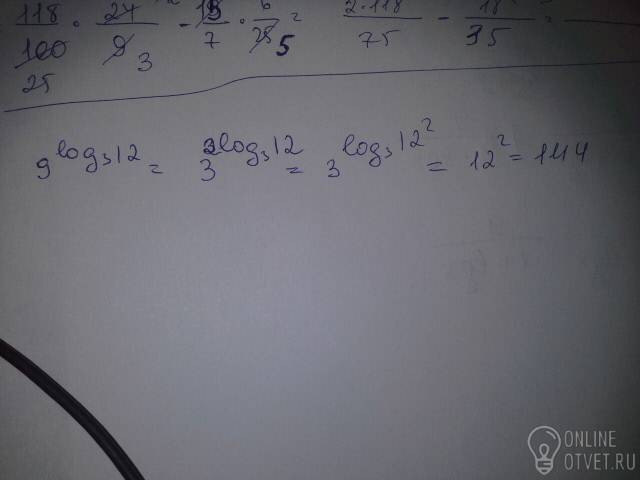 118/100 · 24/9 - 15/7 · 6/25 = 2·118/75 - 18/35 =
25 3 5
9^log₃12 = 3^2log₃12 = 3^log₃12² = 12² = 144
ONLINE
OTVET.RU